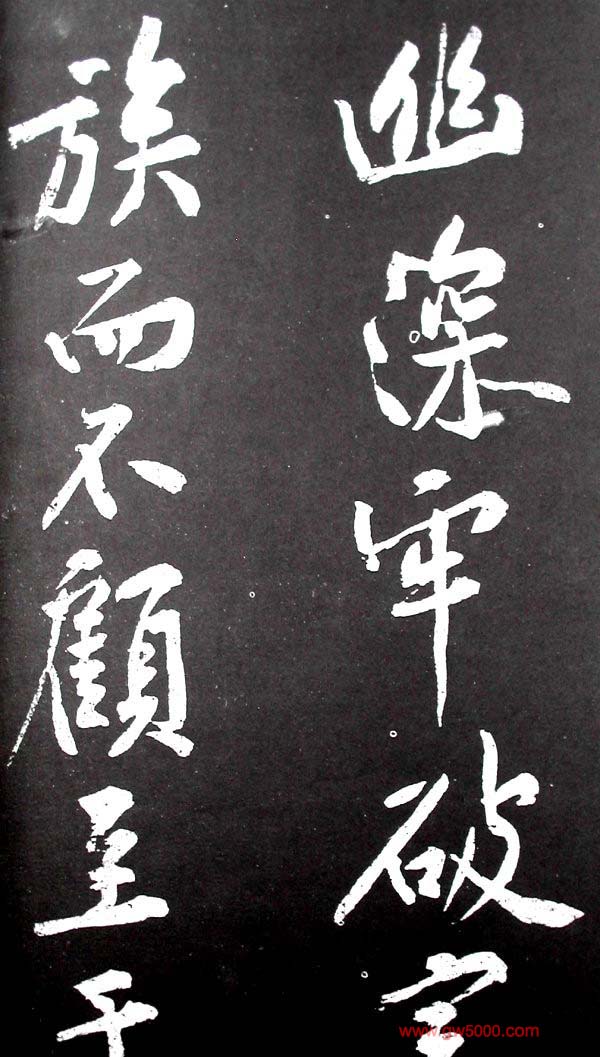 幽深牢破室
族而不顧至于
www.gw5000.com